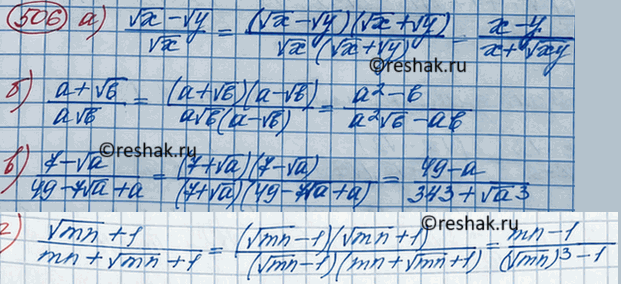 506 а) (√x − √y)/√x = (√x − √y)(√x + √y)/(√x (√x + √y)) = (x − y)/(x + √xy)
©reshak.ru
б) (a + √b)/(a√b) = (a + √b)(a − √b)/(a√b(a − √b)) = (a² − b)/(a²√b − ab)
©reshak.ru
в) (7 − √a)/(49 − 7√a + a) = (7 + √a)(7 − √a)/((7 + √a)(49 − 7√a + a)) = (49 − a)/(343 + √a³)
©reshak.ru
г) (√mn + 1)/(mn + √mn + 1) = (√mn − 1)(√mn + 1)/((√mn − 1)(mn + √mn + 1)) = (mn − 1)/((√mn)³ − 1)